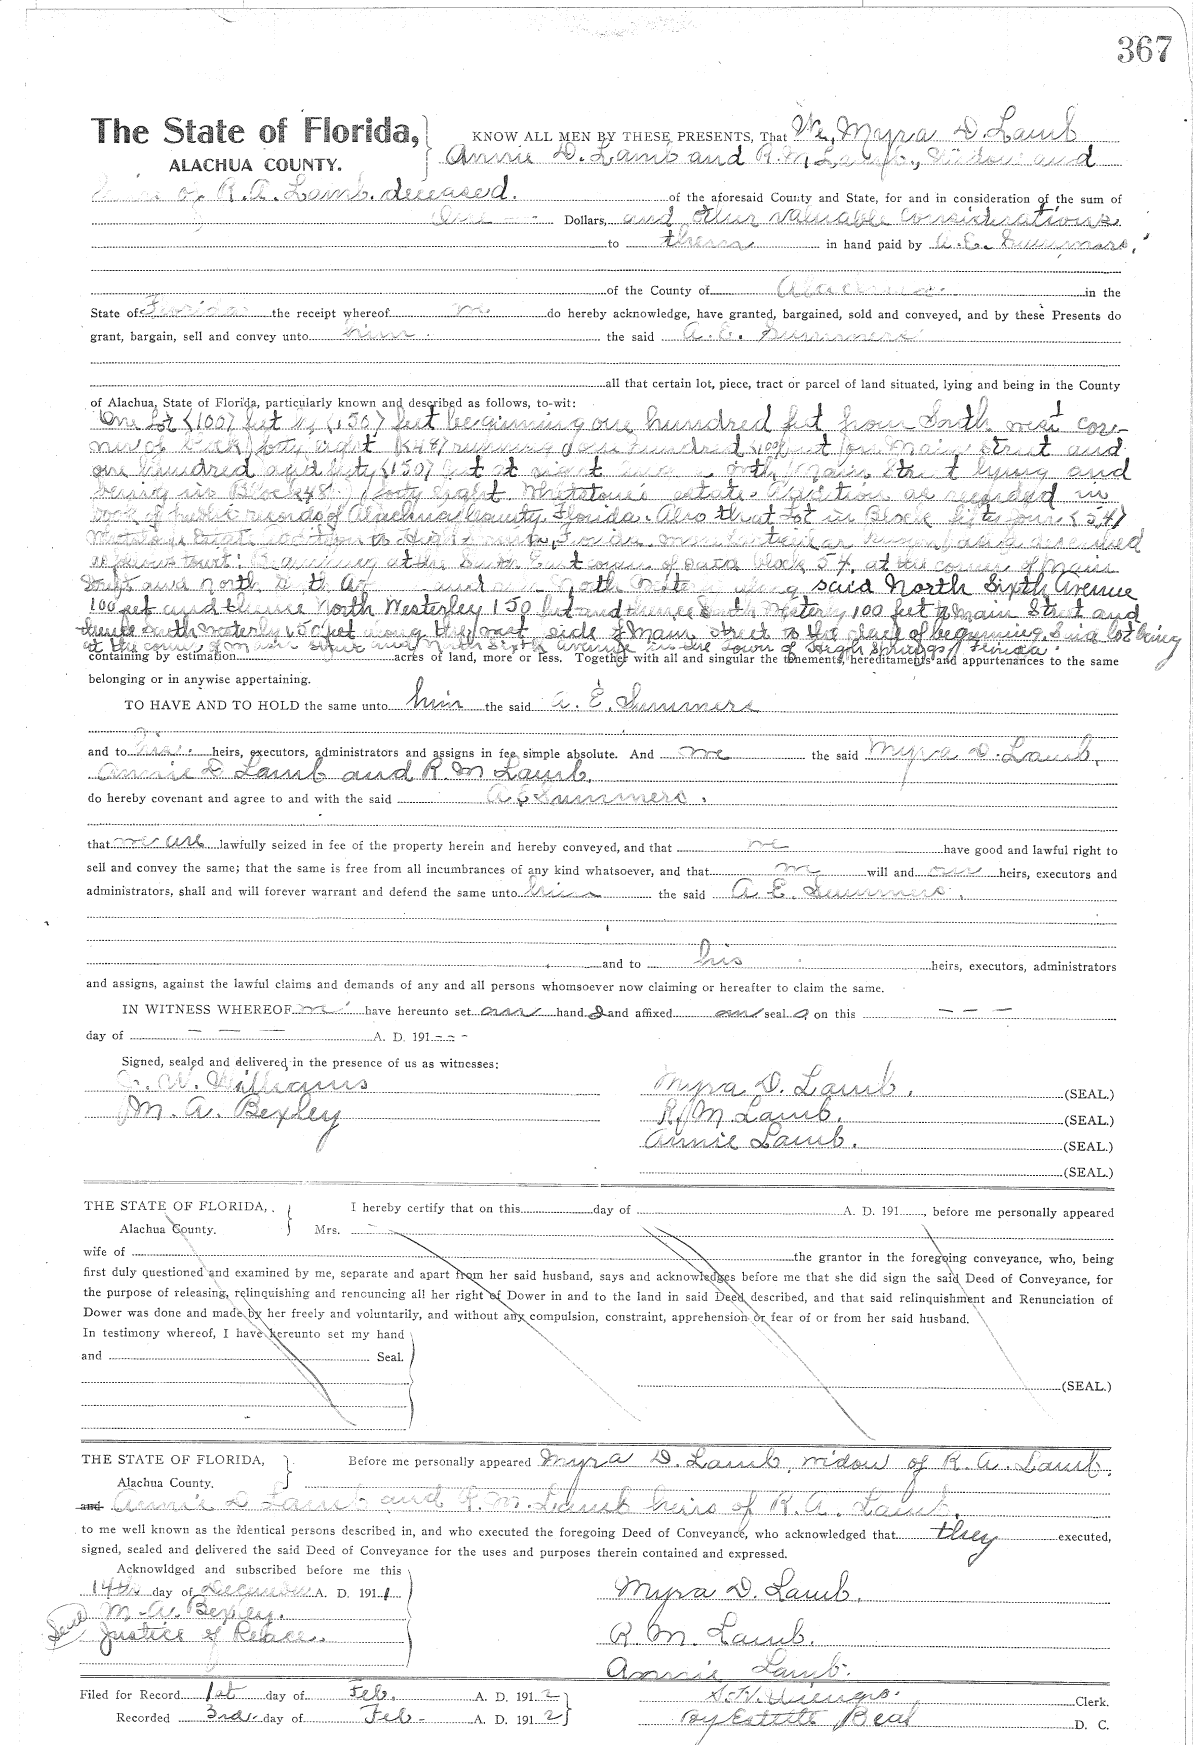 367
The State of Florida,
ALACHUA COUNTY.
KNOW ALL MEN BY THESE PRESENTS, That We, Myra D. Lamb
Annie D. Lamb and R. M. Lamb, Widow and
heirs of R. A. Lamb deceased. of the aforesaid County and State, for and in consideration of the sum of
One Dollars, and other valuable considerations
to them in hand paid by A. E. Summers,
of the County of Alachua in the
State of Florida the receipt whereof we do hereby acknowledge, have granted, bargained, sold and conveyed, and by these Presents do
grant, bargain, sell and convey unto him the said A. E. Summers
all that certain lot, piece, tract or parcel of land situated, lying and being in the County
of Alachua, State of Florida, particularly known and described as follows, to-wit:
One Lot (100) feet by (150) feet beginning one hundred feet from South west cor-
ner of block forty eight (48) running one hundred (100) feet on Main Street and
one hundred and fifty (150) feet at right Main Street lying and
being in Block 48 forty eight Whetstone's estate Addition as recorded in
book of public records of Alachua County, Florida. Also that Lot in Block fifty four (54)
described
as follows to wit: Beginning at the South East corner of said block 54, at the corner of Main
Street and North Sixth Ave and North along said North Sixth Avenue
100 feet and thence North Westerley 150 feet and thence South Westerly 100 feet to Main Street and
thence South 150 feet along the west side of Main Street to the place of beginning. Said lot being
at the corner of Main Street and North Sixth Avenue in the Town of High Springs, Florida.
containing by estimation acres of land, more or less. Together with all and singular the tenements, hereditaments and appurtenances to the same
belonging or in anywise appertaining.
TO HAVE AND TO HOLD the same unto him the said A. E. Summers
and to his heirs, executors, administrators and assigns in fee simple absolute. And we the said Myra D. Lamb,
Annie D Lamb and R. M Lamb,
do hereby covenant and agree to and with the said A E Summers.
that we are lawfully seized in fee of the property herein and hereby conveyed, and that we have good and lawful right to
sell and convey the same; that the same is free from all incumbrances of any kind whatsoever, and that we will and our heirs, executors and
administrators, shall and will forever warrant and defend the same unto him the said A E. Summers.
and to his heirs, executors, administrators
and assigns, against the lawful claims and demands of any and all persons whomsoever now claiming or hereafter to claim the same.
IN WITNESS WHEREOF we have hereunto set our hand s and affixed our seal s on this - - -
day of - - - A. D. 191 - - -
Signed, sealed and delivered in the presence of us as witnesses:
W. Williams
M. A. Bexley
Myra D. Lamb. (SEAL.)
R. M Lamb. (SEAL.)
Annie Lamb. (SEAL.)
(SEAL.)
THE STATE OF FLORIDA,
Alachua County.
I hereby certify that on this day of A. D. 191 , before me personally appeared
Mrs.
wife of the grantor in the foregoing conveyance, who, being
first duly questioned and examined by me, separate and apart from her said husband, says and acknowledges before me that she did sign the said Deed of Conveyance, for
the purpose of releasing, relinquishing and renouncing all her right of Dower in and to the land in said Deed described, and that said relinquishment and Renunciation of
Dower was done and made by her freely and voluntarily, and without any compulsion, constraint, apprehension or fear of or from her said husband.
In testimony whereof, I have hereunto set my hand
and Seal.
(SEAL.)
THE STATE OF FLORIDA,
Alachua County.
Before me personally appeared Myra D. Lamb, widow of R. A. Lamb,
and Annie D Lamb and R. M. Lamb heirs of R. A. Lamb.
to me well known as the identical persons described in, and who executed the foregoing Deed of Conveyance, who acknowledged that they executed,
signed, sealed and delivered the said Deed of Conveyance for the uses and purposes therein contained and expressed.
Acknowldged and subscribed before me this
14th day of December A. D. 1911
M. A. Bexley.
Seal
Justice of Peace.
Myra D. Lamb.
R. M. Lamb.
Annie Lamb.
Filed for Record 1st day of Feb. A. D. 1912
Recorded 3rd day of Feb - A. D. 1912
S. H. Wienges. Clerk.
By Estelle Beal D. C.